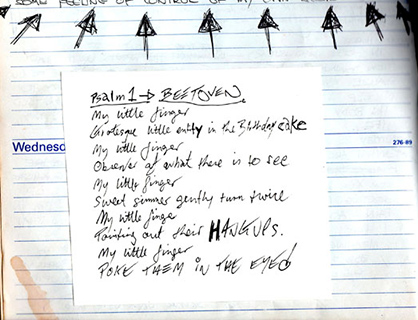 FEELING OF CONTROL OF MY OWN
Psalm 1 → BEETOVEN.
My little finger
Grotesque little entity in the Birthday cake
My little finger
Observer of what there is to see
My little finger
Sweet simmer gently turn twice
My little finge
Pointing out their HANGUPS.
My little finger
POKE THEM IN THE EYE
Wednesd
276-89